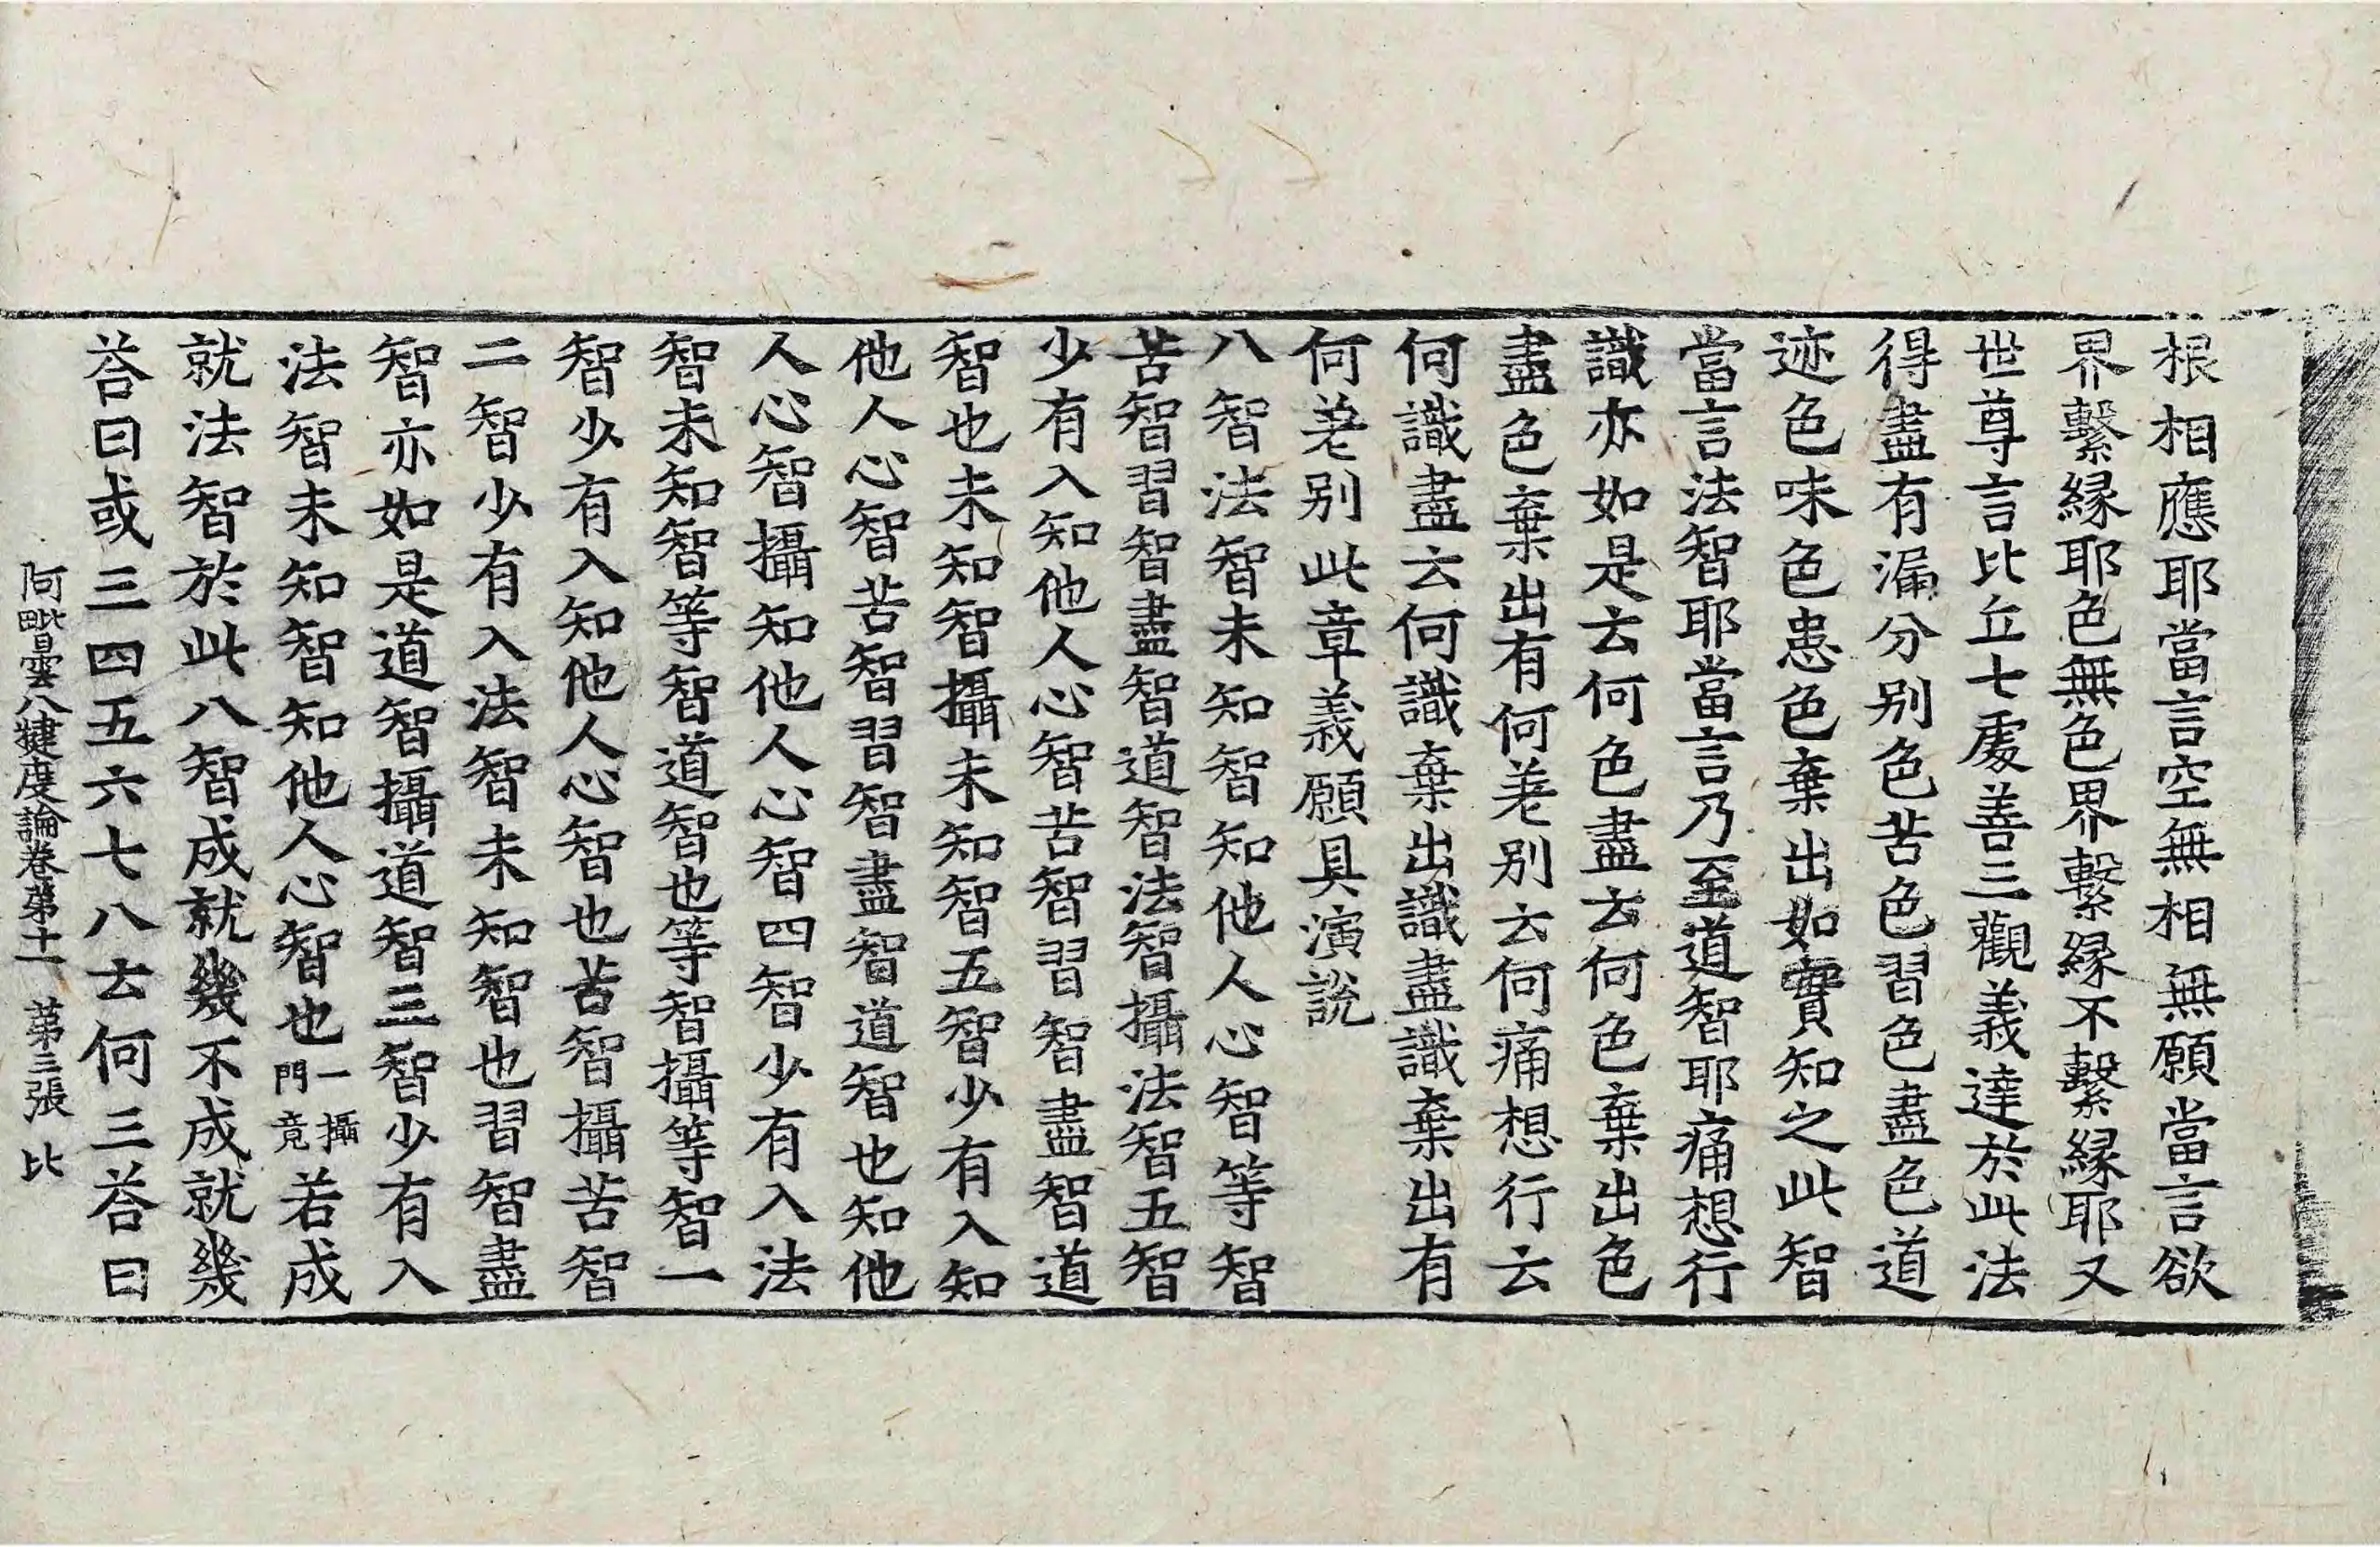 根相應耶當言空無相無願當言欲
界繫緣耶色無色界繫緣不繫緣耶又
世尊言比丘七處善三觀義達於此法
得盡有漏分别色苦色習色盡色道
迹色味色患色棄出如實知之此智
當言法智耶當言乃至道智耶痛想行
識亦如是云何色盡云何色棄出色
盡色棄出有何差别云何痛想行云
何識盡云何識棄出識盡識棄出有
何差别此章義願具演說
八智法智未知智知他人心智等智
苦智習智盡智道智法智攝法智五智
少有入知他人心智苦智習智盡智道
智也未知智攝未知智五智少有入知
他人心智苦智習智盡智道智也知他
人心智攝知他人心智四智少有入法
智未知智等智道智也等智攝等智一
智少有入知他人心智也苦智攝苦智
二智少有入法智未知智也習智盡
智亦如是道智攝道智三智少有入
法智未知智知他人心智也一攝門竟若成
就法智於此八智成就幾不成就幾
荅曰或三四五六七八云何三荅曰
阿毗曇八揵度論卷第十一 第三張 比